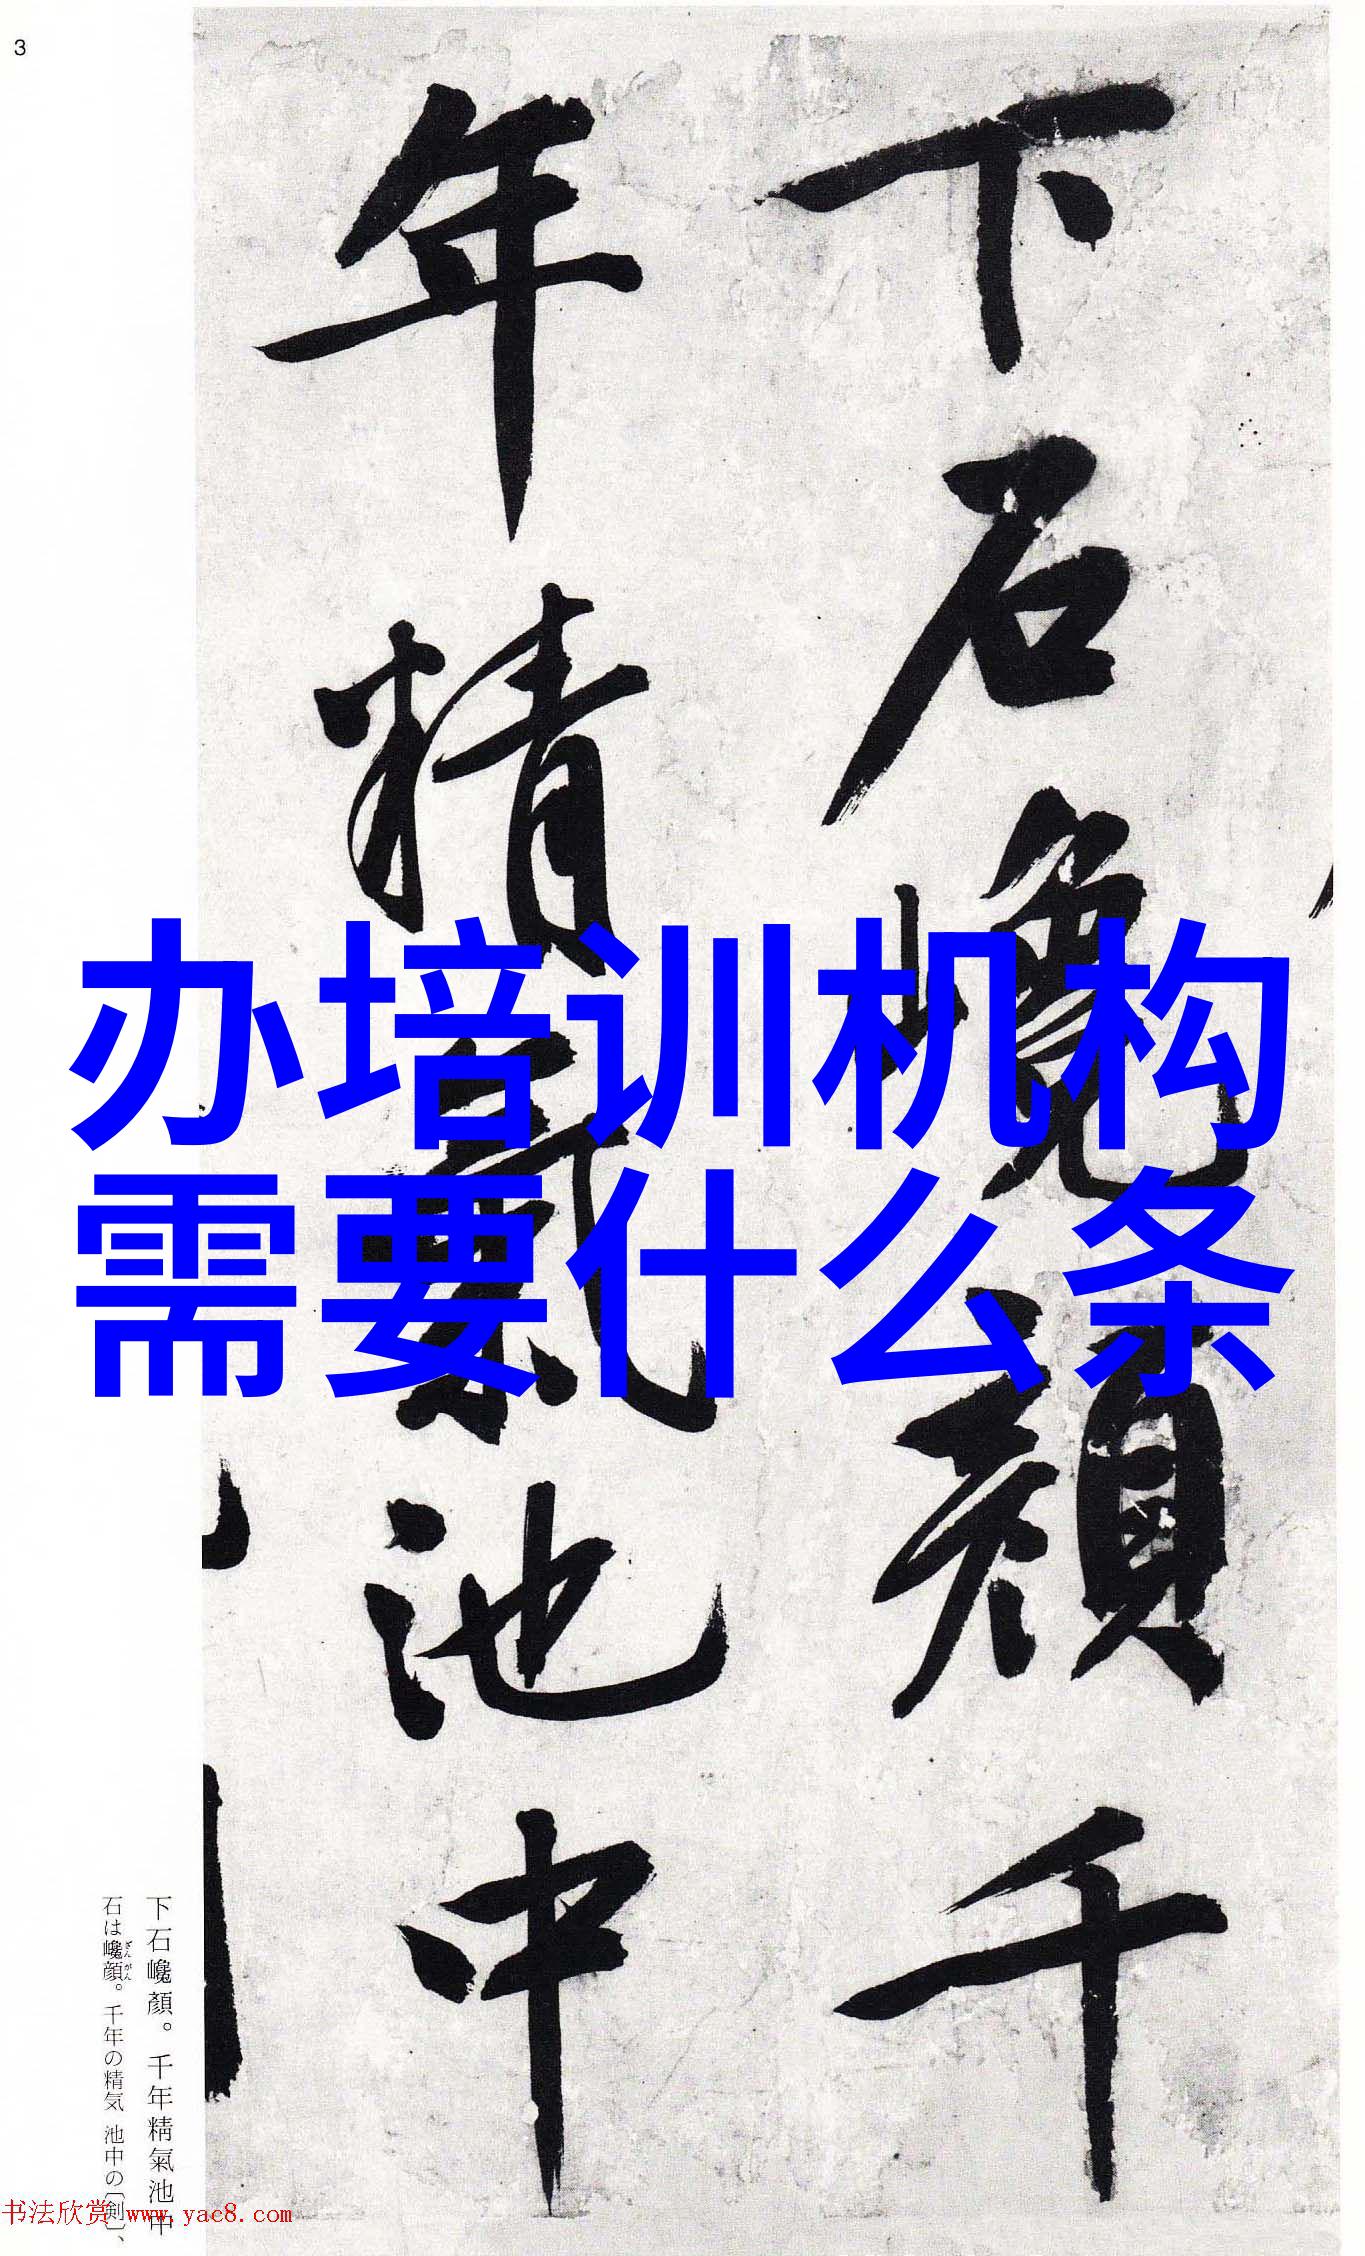 3
下石巉顔千
年精氣池中
办培训机构
需要什么条
下石巉顏。千年精氣池中
石は巉顔。千年の精気 池中の〔剣〕、
ざんがん
书法欣赏 www.yac8.com